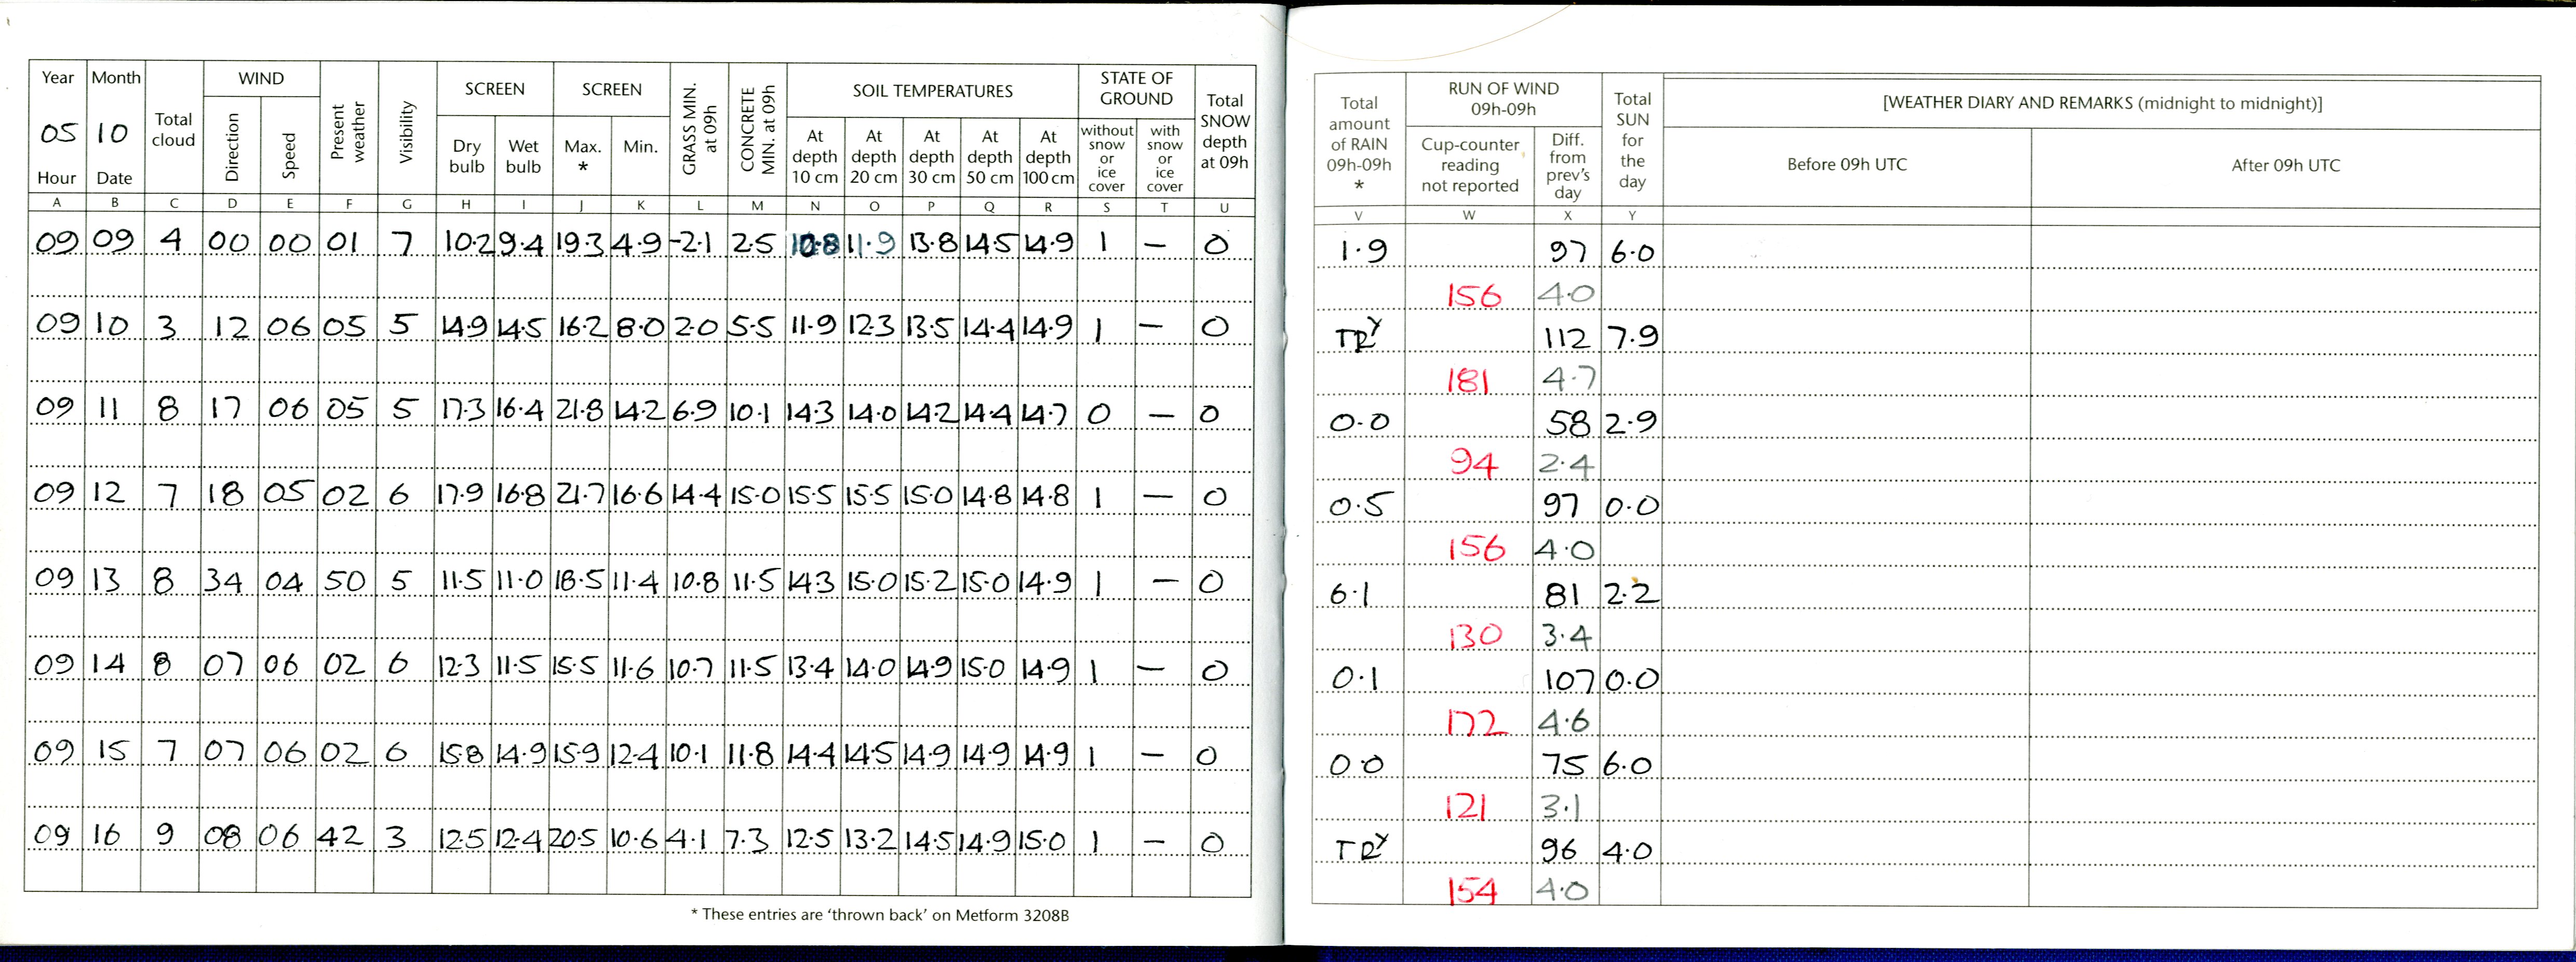 Year Month Total cloud WIND Present weather Visibility SCREEN SCREEN GRASS MIN. at 09h CONCRETE MIN. at 09h SOIL TEMPERATURES STATE OF GROUND Total SNOW depth at 09h
05 10 Direction Speed Dry bulb Wet bulb Max. * Min. At depth 10 cm At depth 20 cm At depth 30 cm At depth 50 cm At depth 100 cm without snow or ice cover with snow or ice cover
Hour Date
A B C D E F G H I J K L M N O P Q R S T U
09 09 4 00 00 01 7 10.2 9.4 19.3 4.9 -2.1 2.5 10.8 11.9 13.8 14.5 14.9 1 — 0
09 10 3 12 06 05 5 14.9 14.5 16.2 8.0 2.0 5.5 11.9 12.3 13.5 14.4 14.9 1 — 0
09 11 8 17 06 05 5 17.3 16.4 21.8 14.2 6.9 10.1 14.3 14.0 14.2 14.4 14.7 0 — 0
09 12 7 18 05 02 6 17.9 16.8 21.7 16.6 14.4 15.0 15.5 15.5 15.0 14.8 14.8 1 — 0
09 13 8 34 04 50 5 11.5 11.0 18.5 11.4 10.8 11.5 14.3 15.0 15.2 15.0 14.9 1 — 0
09 14 8 07 06 02 6 12.3 11.5 15.5 11.6 10.7 11.5 13.4 14.0 14.9 15.0 14.9 1 — 0
09 15 7 07 06 02 6 15.8 14.9 15.9 12.4 10.1 11.8 14.4 14.5 14.9 14.9 14.9 1 — 0
09 16 9 08 06 42 3 12.5 12.4 20.5 10.6 4.1 7.3 12.5 13.2 14.5 14.9 15.0 1 — 0
* These entries are 'thrown back' on Metform 3208B
Total amount of RAIN 09h-09h * RUN OF WIND 09h-09h Total SUN for the day [WEATHER DIARY AND REMARKS (midnight to midnight)]
Cup-counter reading not reported Diff. from prev's day Before 09h UTC After 09h UTC
V W X Y
1.9 97 6.0
156 4.0
TRY 112 7.9
181 4.7
0.0 58 2.9
94 2.4
0.5 97 0.0
156 4.0
6.1 81 2.2
130 3.4
0.1 107 0.0
172 4.6
0.0 75 6.0
121 3.1
TRY 96 4.0
154 4.0